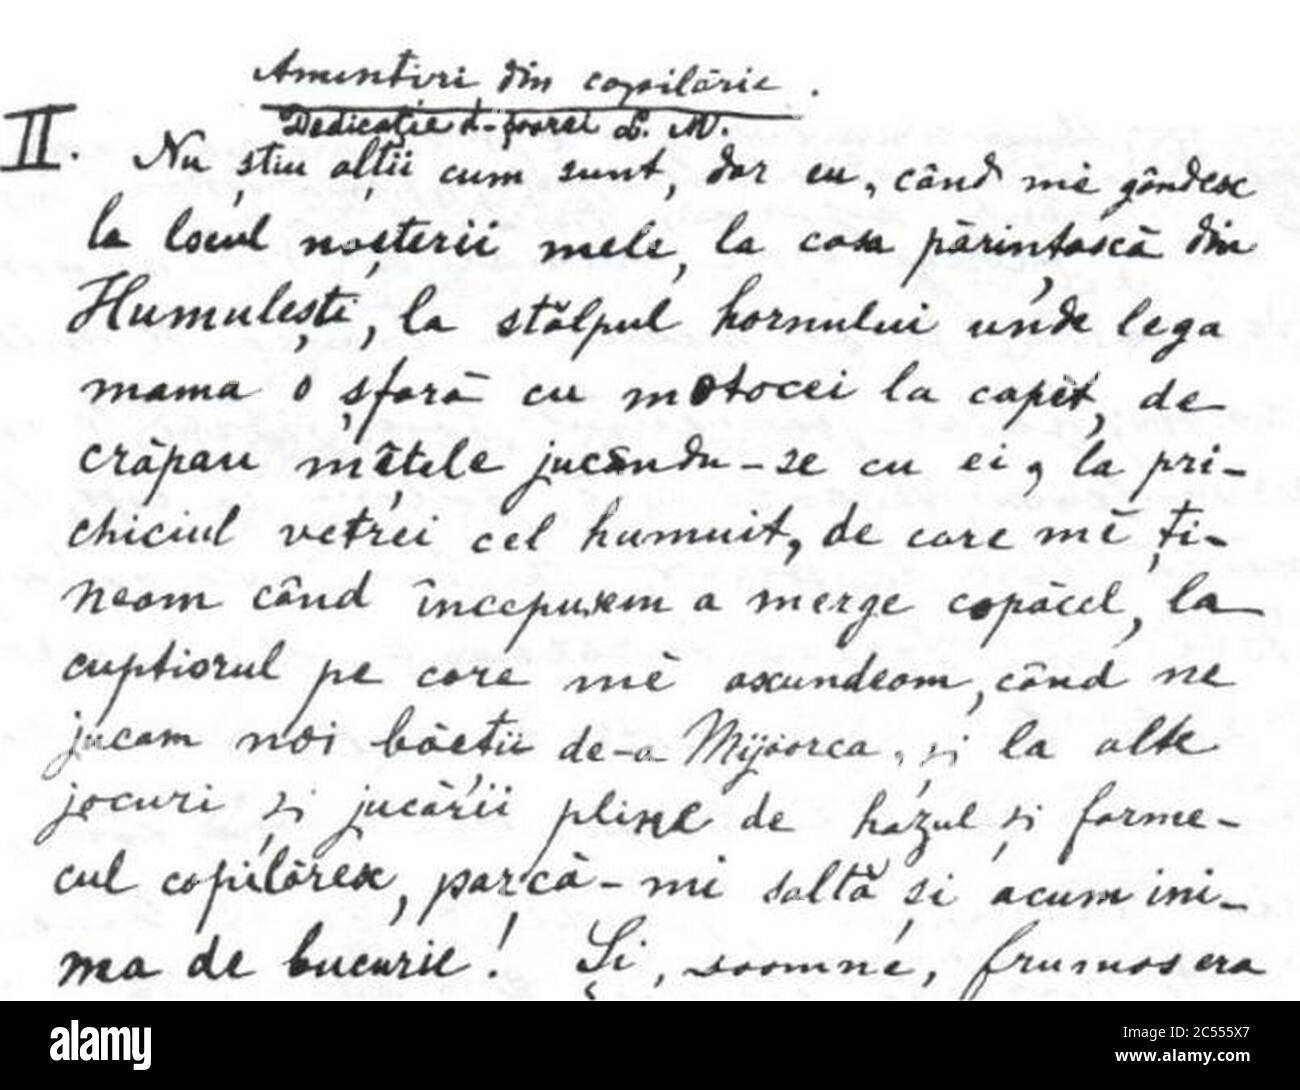 Amintiri din copilărie.
Dedicație d-șoarei L. M.
II. Nu știu alții cum sunt, dar eu, când mĕ gândesc
la locul nașterii mele, la casa părintască din
Humulești, la stâlpul hornului unde lega
mama o șfară cu motocei la capĕt, de
crăpau mâțele jucându-se cu ei, la pri-
chiciul vetrei cel humuit, de care mĕ ți-
neam când începusem a merge copăcel, la
cuptiorul pe care mĕ ascundeam, când ne
jucam noi băețiĭ de-a Mijoarca, și la alte
jocuri și jucării pline de hazul și farme-
cul copilăresc, parcă-mi saltă și acum ini-
ma de bucurie! Și, Doamne, frumos era
alamy
Image ID: 2C555X7
www.alamy.com